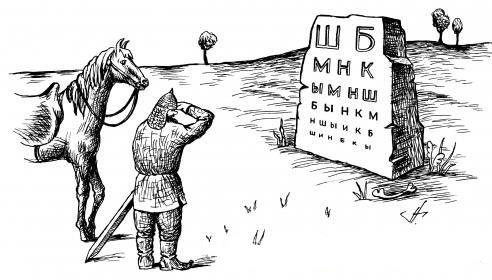 Ш Б
М Н К
Ы М Н Ш
Б Ы Н К М
Н Ш Ы И К Б
Ш И Н Б К Ы